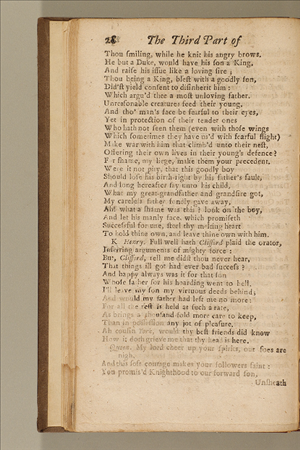 28 The Third Part of
Thou smiling, while he knit his angry brows.
He but a Duke, would have his son a King,
And raise his issue like a loving sire;
Thou being a King, blest with a goodly son,
Did'st yield consent to disinherit him:
Which argu'd thee a most unloving father.
Unreasonable creatures feed their young,
And tho' man's face be fearful to their eyes,
Yet in protection of their tender ones
Who hath not seen them (even with those wings
Which sometimes they have us'd with fearful flight)
Make war with him that climb'd unto their nest,
Offering their own lives in their young's defence?
For shame, my Liege, make them your precedent.
Were it not pity, that this goodly boy
Should lose his birth-right by his father's fault,
And long hereafter say unto his child,
What my great-grandfather and grandsire got,
My careless father fondly gave away.
Ah! what a shame was this? look on the boy,
And let his manly face, which promiseth
Successful fortune, steel thy melting heart
To hold thine own, and leave thine own with him.
K. Henry. Full well hath Clifford plaid the orator,
Inferring arguments of mighty force:
But, Clifford, tell me didst thou never hear,
That things ill got had ever bad success?
And happy always was it for that son
Whose father for his hoarding went to hell.
I'll leave my son my virtuous deeds behind;
And would my father had left me no more:
For all the rest is held at such a rate,
As brings a thousand fold more care to keep,
Than in possession any jot of pleasure.
Ah cousin York, would thy best friends did know
How it doth grieve me that thy head is here.
Queen. My lord cheer up your spirits, our foes are
nigh,
And this soft courage makes your followers faint:
You promis'd Knighthood to our forward son,
Unsheath